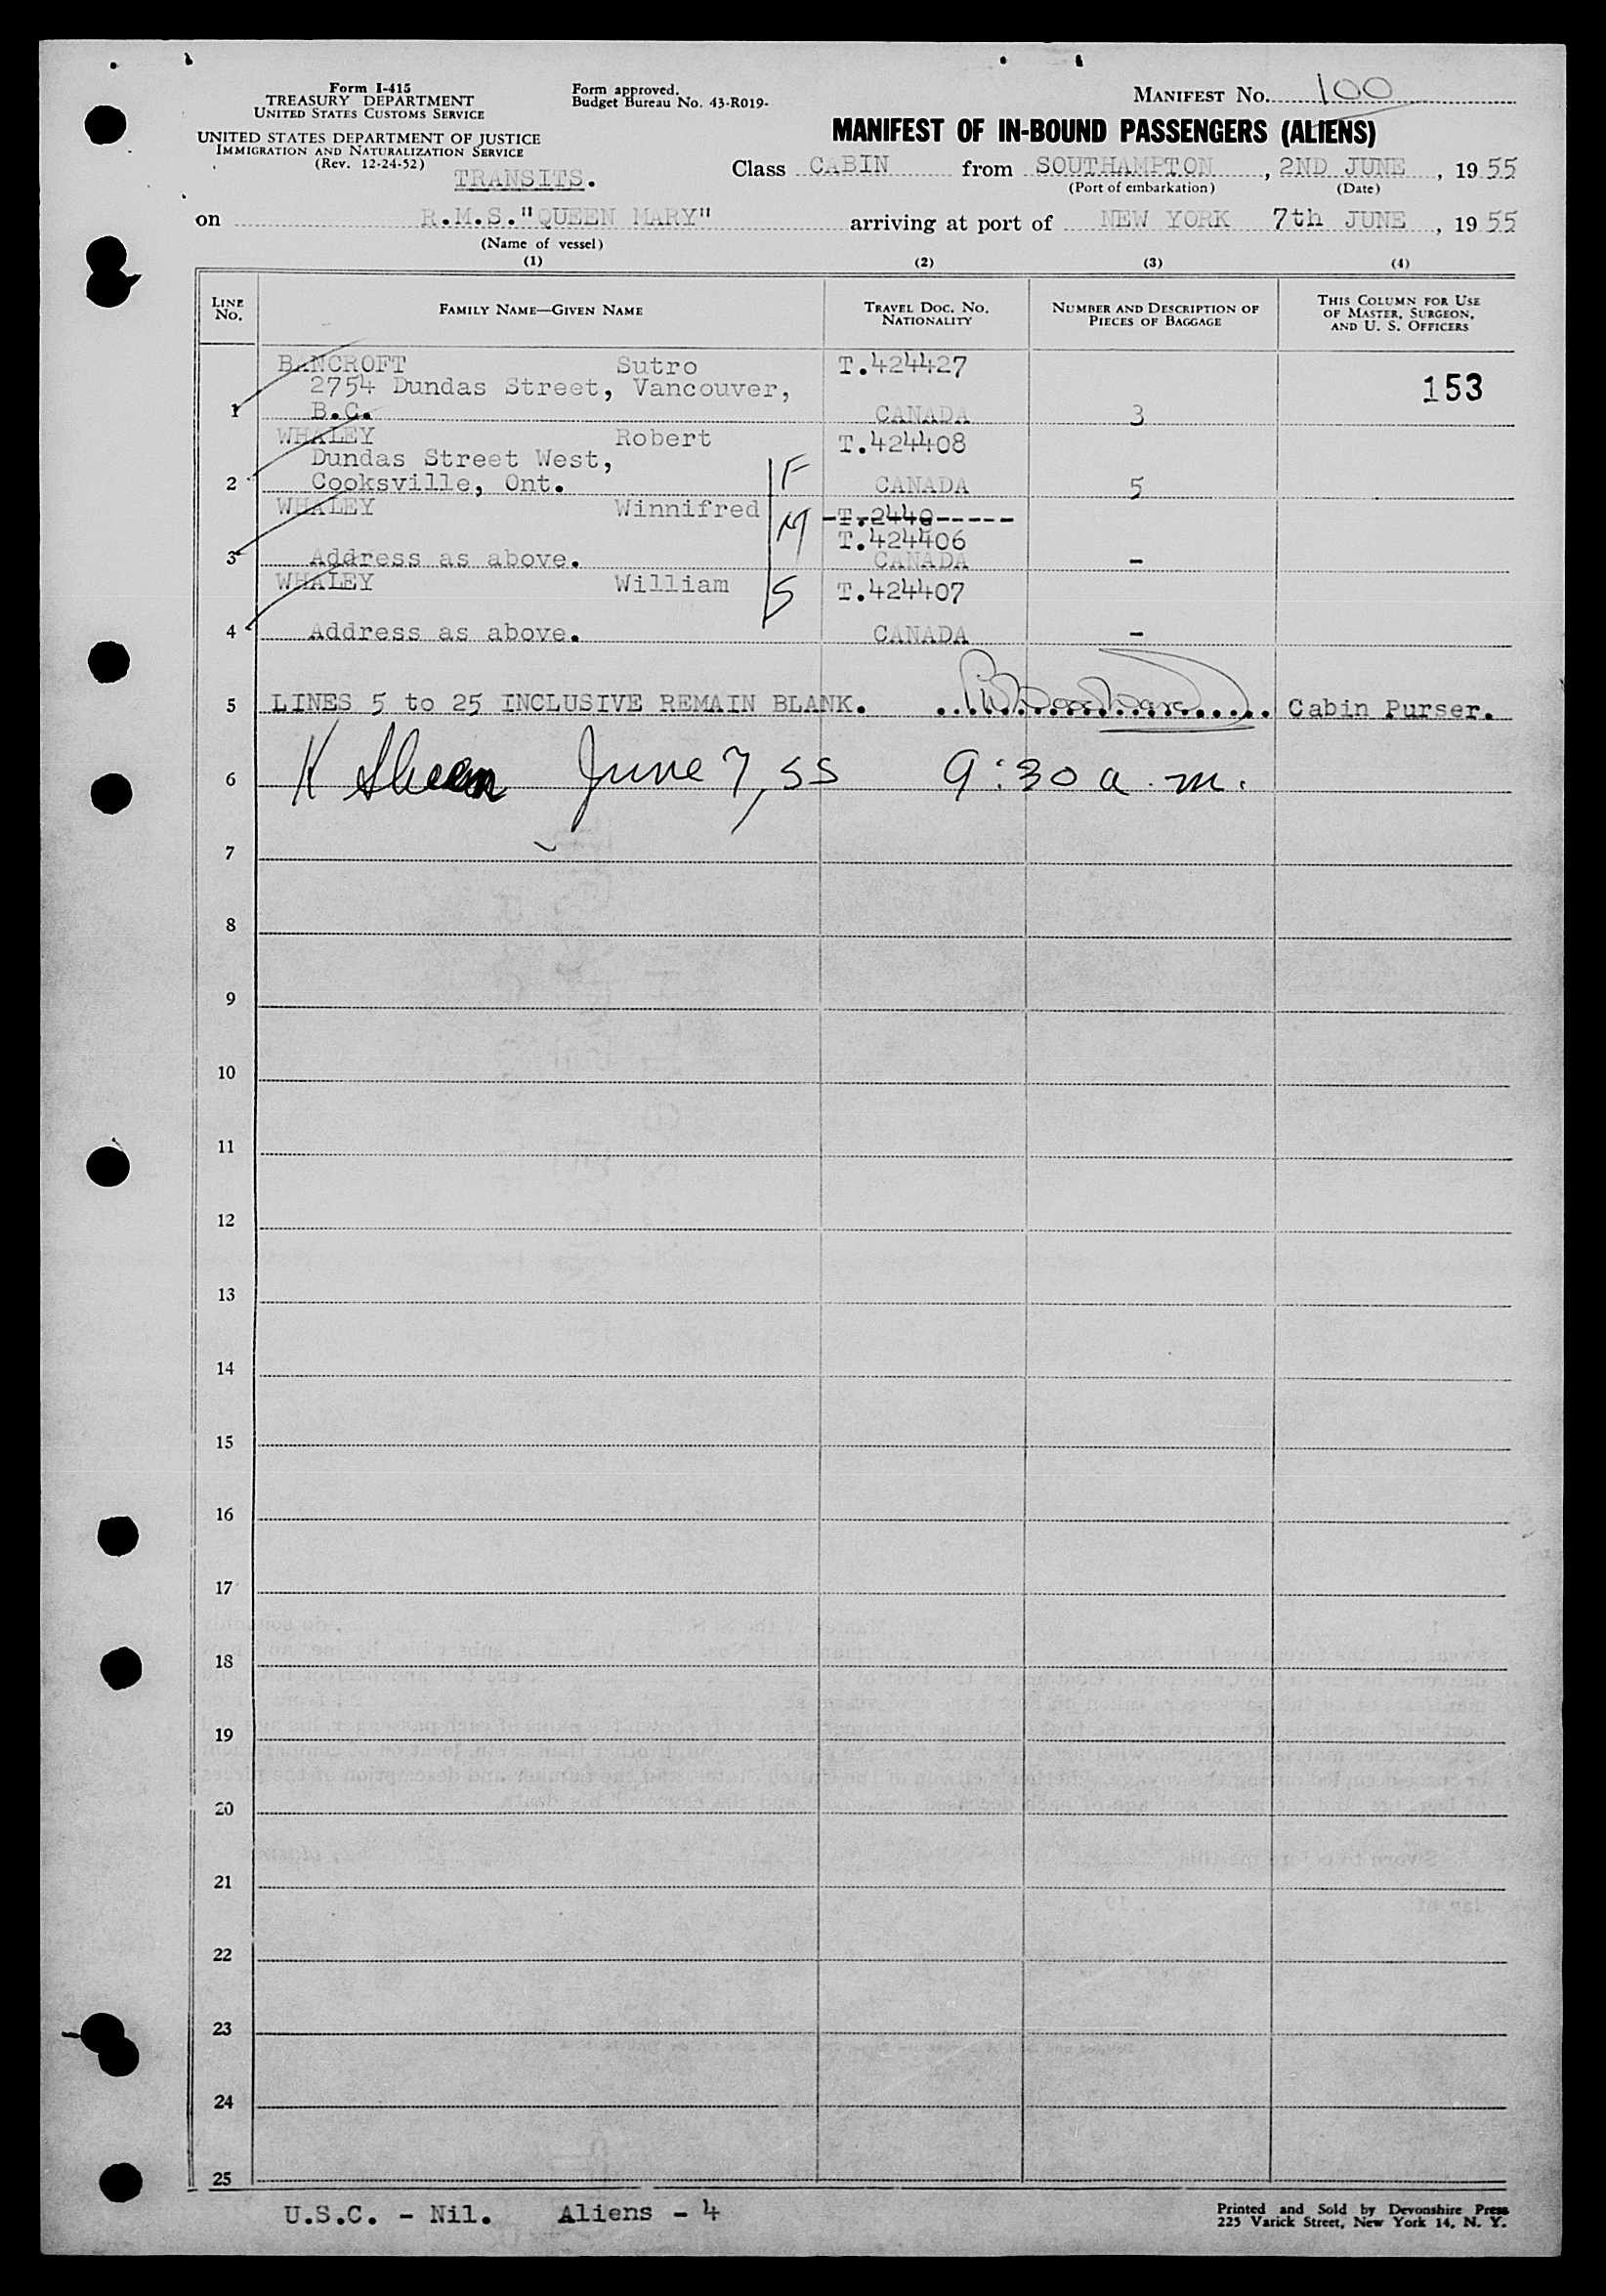 Form I-415
TREASURY DEPARTMENT
UNITED STATES CUSTOMS SERVICE
UNITED STATES DEPARTMENT OF JUSTICE
IMMIGRATION AND NATURALIZATION SERVICE
(Rev. 12-24-52)
TRANSITS.
Form approved.
Budget Bureau No. 43-R019-
MANIFEST NO. 100
MANIFEST OF IN-BOUND PASSENGERS (ALIENS)
Class CABIN from SOUTHAMPTON, 2ND JUNE, 1955
(Port of embarkation) (Date)
on R.M.S."QUEEN MARY" arriving at port of NEW YORK 7th JUNE, 1955
(Name of vessel)
(1) (2) (3) (4)
LINE NO. FAMILY NAME—GIVEN NAME TRAVEL DOC. NO. NATIONALITY NUMBER AND DESCRIPTION OF PIECES OF BAGGAGE THIS COLUMN FOR USE OF MASTER, SURGEON, AND U. S. OFFICERS
BANCROFT Sutro T.424427
2754 Dundas Street, Vancouver, 153
1 B.C. CANADA 3
WHALEY Robert T.424408
Dundas Street West, F
2 Cooksville, Ont. CANADA 5
WHALEY Winnifred M T.2440
T.424406
3 Address as above. CANADA -
WHALEY William S T.424407
4 Address as above. CANADA -
5 LINES 5 to 25 INCLUSIVE REMAIN BLANK. Cabin Purser.
6 K June 7, 55 9:30 a.m.
7
8
9
10
11
12
13
14
15
16
17
18
19
20
21
22
23
24
25
U.S.C. - Nil. Aliens - 4
Printed and Sold by Devonshire Press
225 Varick Street, New York 14, N. Y.